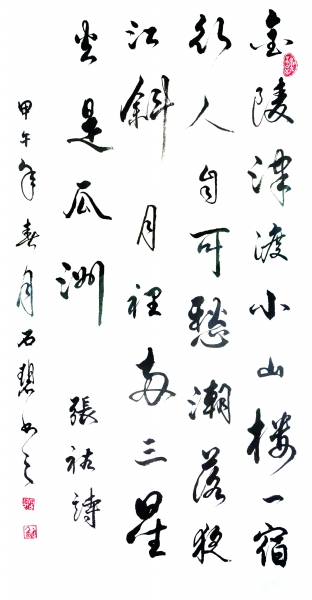 金陵津渡小山樓一宿
行人自可愁潮落夜
江斜月裡兩三星
火是瓜洲 張祜詩
甲午年春月石碧